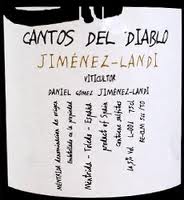 CANTOS DEL DIABLO
JIMÉNEZ-LANDI
VITICULTOR
DANIEL GÓMEZ JIMÉNEZ-LANDI
MÉNTRIDA denominación de origen
Embotellado en la propiedad
Méntrida - Toledo - España
product of Spain
Contiene sulfitos
14,5% Vol. L-001 75cl